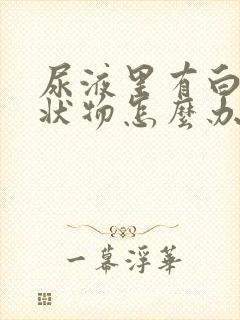 尿液里有白
状物怎麽办
一幕浮华